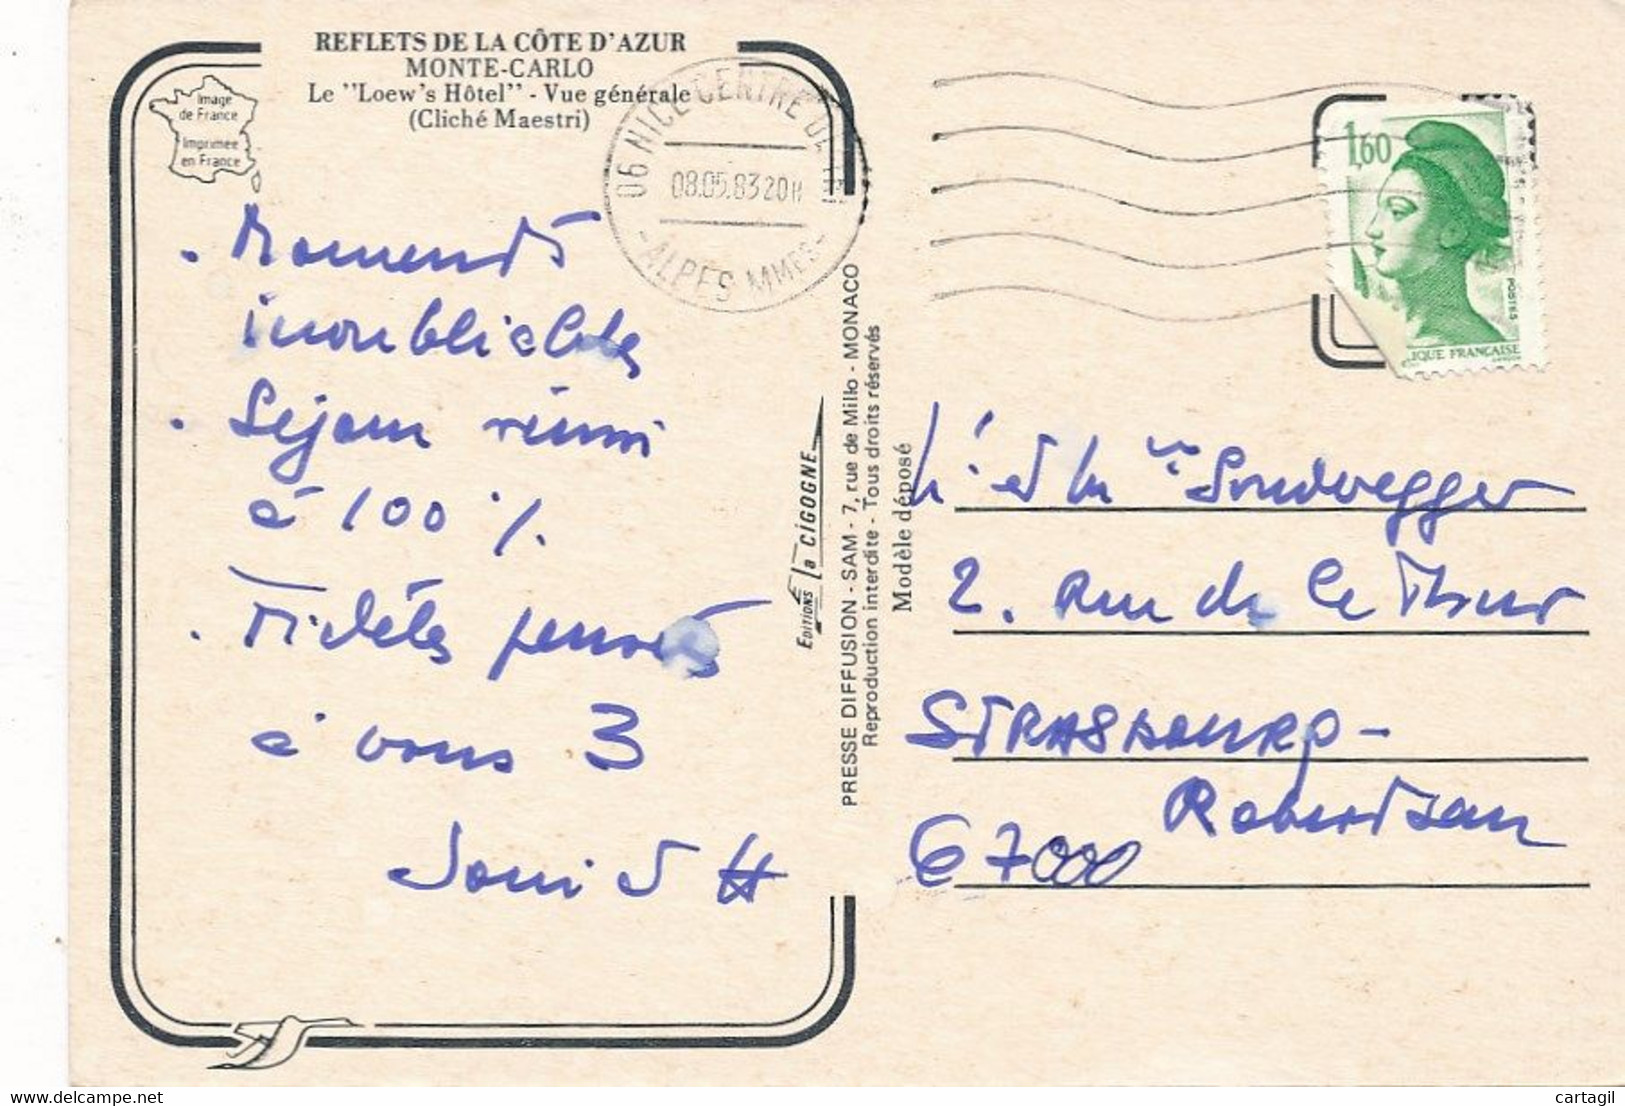 REFLETS DE LA CÔTE D'AZUR
MONTE-CARLO
Le "Loew's Hôtel" - Vue générale
(Cliché Maestri)
Image
de France
Imprimée
en France
06 NICE CENTRE DE TRI
08.05.83 20H
-ALPES MMES-
1,60
POSTES
LIQUE FRANÇAISE
. Moments
inoubliables
. Séjour réussi
à 100 %.
. Fidèles pensées
à vous 3
EDITIONS la CIGOGNE
PRESSE DIFFUSION - SAM - 7, rue de Millo - MONACO
Reproduction interdite - Tous droits réservés
Modèle déposé
2. Rue de la Thur
STRASBOURG -
Robertsau
67000
cartagil